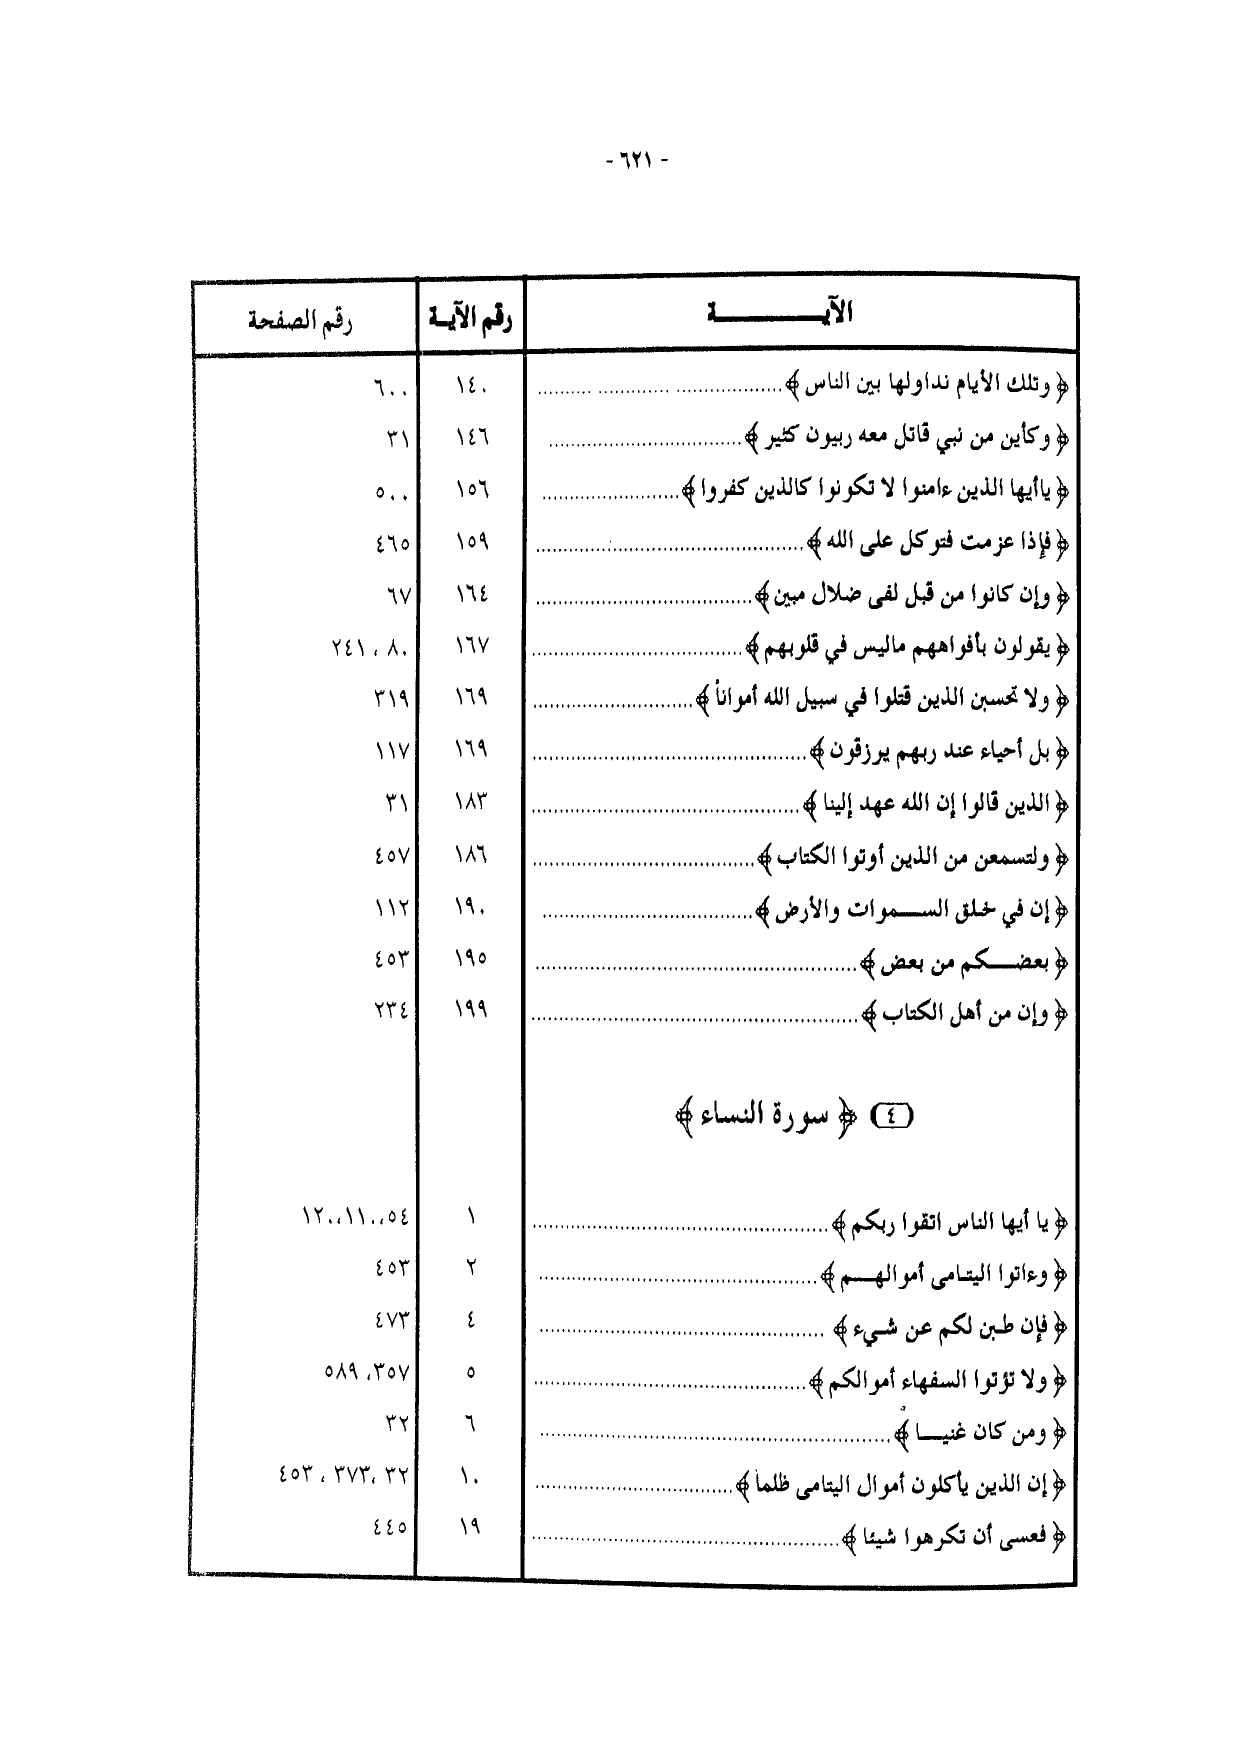 - ٦٢١ -
الآيـــــــة رقم الآيـة رقم الصفحة
﴿ وتلك الأيام نداولها بين الناس ﴾ ........ ١٤٠ ٦٠٠
﴿ وكأين من نبي قاتل معه ربيون كثير ﴾ ........ ١٤٦ ٣١
﴿ ياأيها الذين ءامنوا لا تكونوا كالذين كفروا ﴾ ........ ١٥٦ ٥٠٠
﴿ فإذا عزمت فتوكل على الله ﴾ ........ ١٥٩ ٤٦٥
﴿ وإن كانوا من قبل لفى ضلال مبين ﴾ ........ ١٦٤ ٦٧
﴿ يقولون بأفواههم ماليس في قلوبهم ﴾ ........ ١٦٧ ٨٠ ، ٢٤١
﴿ ولا تحسبن الذين قتلوا في سبيل الله أمواتاً ﴾ ........ ١٦٩ ٣١٩
﴿ بل أحياء عند ربهم يرزقون ﴾ ........ ١٦٩ ١١٧
﴿ الذين قالوا إن الله عهد إلينا ﴾ ........ ١٨٣ ٣١
﴿ ولتسمعن من الذين أوتوا الكتاب ﴾ ........ ١٨٦ ٤٥٧
﴿ إن في خلق الســموات والأرض ﴾ ........ ١٩٠ ١١٢
﴿ بعضــكم من بعض ﴾ ........ ١٩٥ ٤٥٣
﴿ وإن من أهل الكتاب ﴾ ........ ١٩٩ ٢٣٤
(٤) ﴿ سورة النساء ﴾
﴿ يا أيها الناس اتقوا ربكم ﴾ ........ ١ ٥٤،١١٠،١٢٠
﴿ وءاتوا اليتامى أموالهــم ﴾ ........ ٢ ٤٥٣
﴿ فإن طبن لكم عن شيء ﴾ ........ ٤ ٤٧٣
﴿ ولا تؤتوا السفهاء أموالكم ﴾ ........ ٥ ٣٥٧، ٥٨٩
﴿ ومن كان غنيــا ﴾ ........ ٦ ٣٢
﴿ إن الذين يأكلون أموال اليتامى ظلماً ﴾ ........ ١٠ ٣٢، ٣٧٣ ، ٤٥٣
﴿ فعسى أن تكرهوا شيئا ﴾ ........ ١٩ ٤٤٥